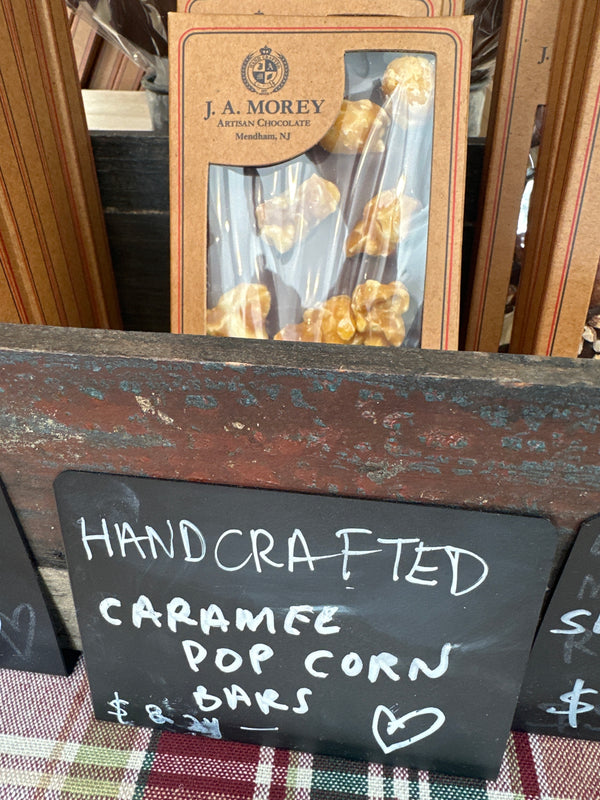 J. A. MOREY
ARTISAN CHOCOLATE
Mendham, NJ
J.
HANDCRAFTED
CARAMEL
POP CORN
BARS
$
$